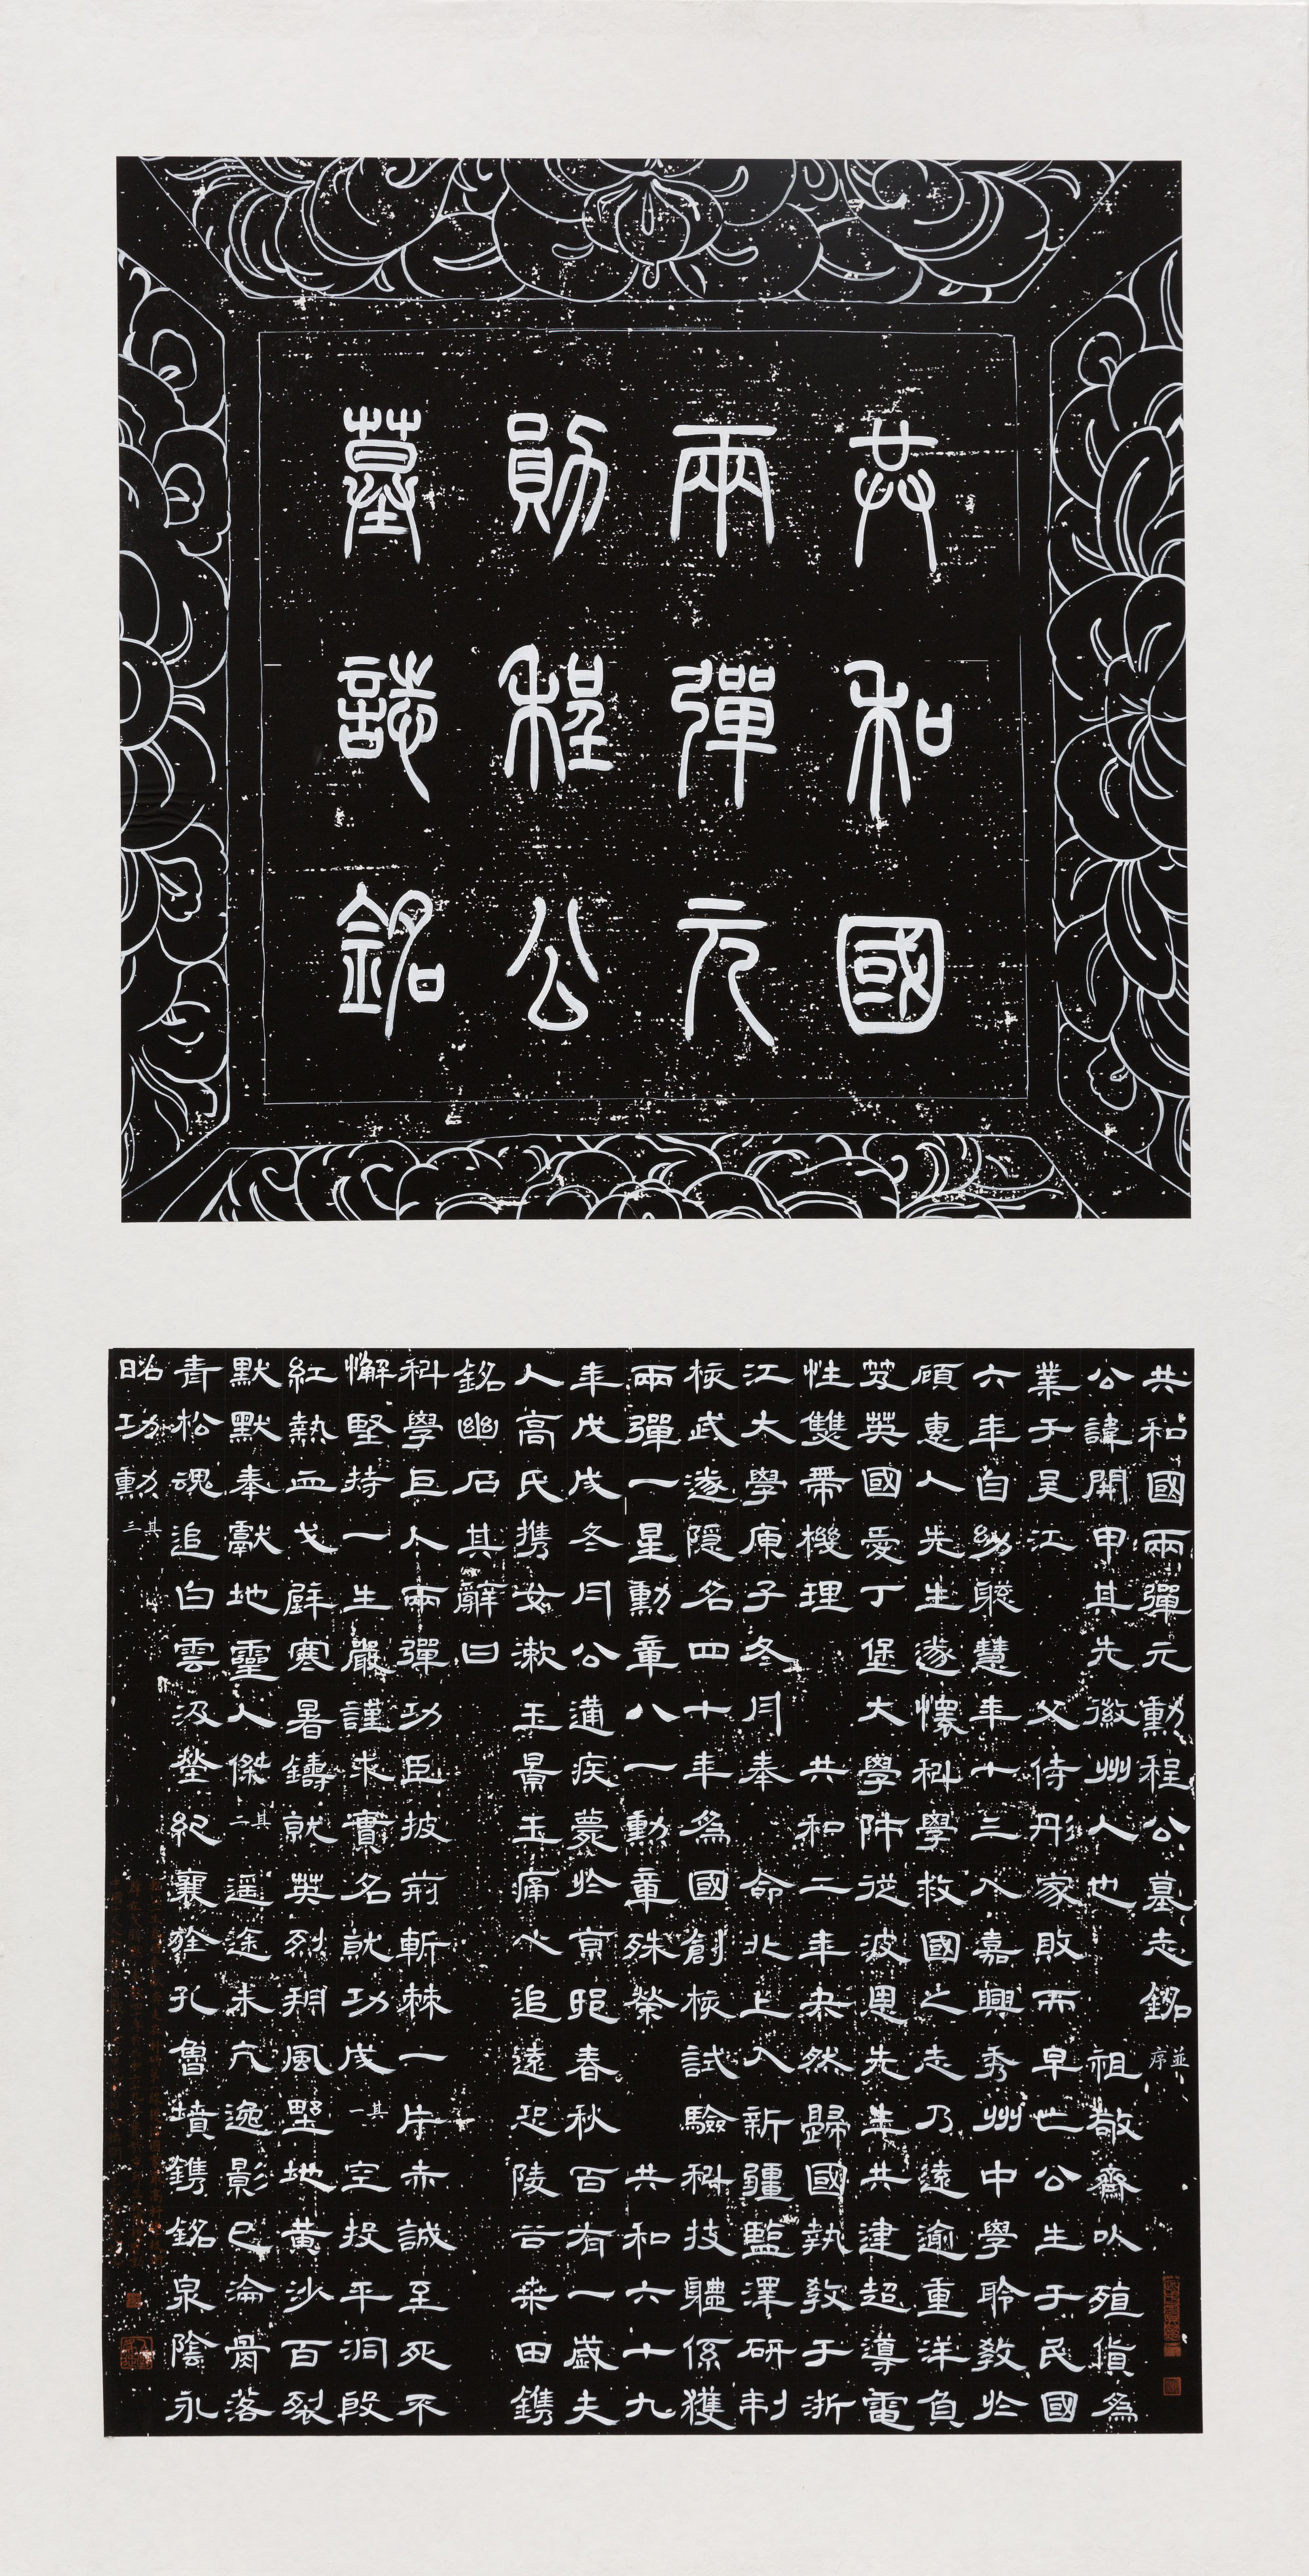 共和國
兩彈元
勛程公
墓誌銘
共和國兩彈元勳程公墓志銘並序
公諱開甲其先徽州人也祖敬齋以殖貨為
業于吴江父侍彤家敗而早亡公生于民國
六年自幼聡慧年十三入嘉興秀州中學聆教於
顧惠人先生遂懷科學救國之志乃遠逾重洋負
笈英國愛丁堡大學師從波恩先生共建超導電
性雙帶機理共和二年夬然歸國執教于浙
江大學庚子冬月奉命北上入新疆監澤研制
核武遂隱名四十年為國創核試驗科技體係獲
兩彈一星勳章八一勳章殊榮共和六十九
年戊戌冬月公遘疾薨於京邸春秋百有一歲夫
人高氏携女漱玉景玉痛心追遠恐陵谷桑田鐫
銘幽石其辭曰
科學巨人兩彈功臣披荊斬棘一片赤誠至死不
懈堅持一生嚴謹求實名就功成其一空投平洞段
紅熱血戈壁寒暑鑄就英烈朔風野地黃沙百裂
默默奉獻地靈人傑其二遥途未亢逸影已淪骨落
青松魂追白雲汲瑩紀襄雅孔魯墳鐫銘泉陰永
昭功勳其三